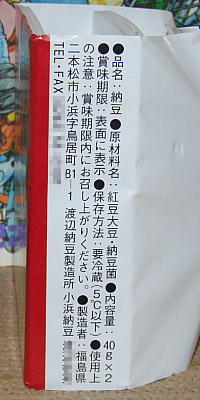 ●品名：納豆●原材料名：紅豆大豆・納豆菌●内容量：40g×2
●賞味期限：表面に表示●保存方法：要冷蔵（5℃以下）●使用上
の注意：賞味期限内にお召し上がりください。●製造者：福島県
二本松市小浜字鳥居町81-1 渡辺納豆製造所 小浜納豆
TEL・FAX